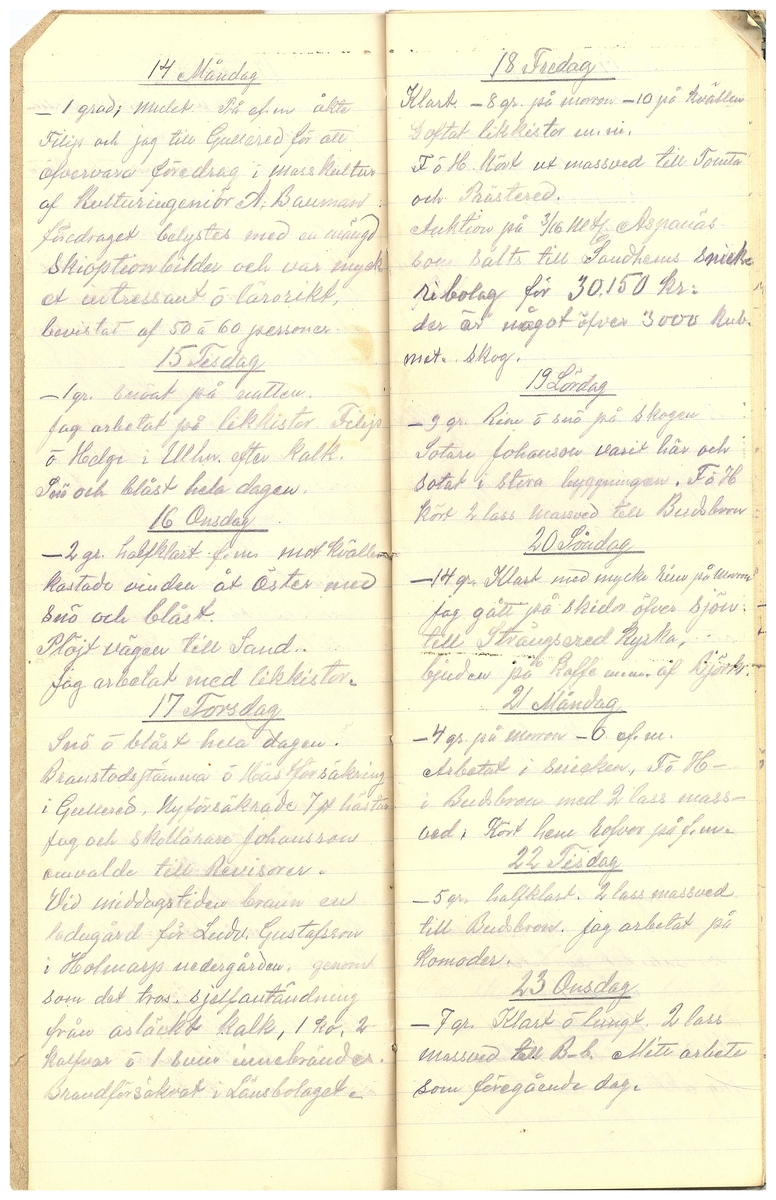 14 Måndag
— 1 grad; mulet På ef.m åkte
Filip och jag till Gullered för att
öfvervara föredrag i mosskultur
af Kulturingeniör A. Bauman
föredraget belystes med en mängd
Skioptionbilder och var myck-
et intressant o lärorikt,
bevistat af 50 à 60 personer.
15 Tisdag
—1 gr. på natten.
Jag arbetat på likkistor Filip
o Helge i Ulhn. efter kalk.
Snö och blåst hela dagen.
16 Onsdag
—2 gr. halfklart f.m. mot kvällen
kastade vinden åt öster med
snö och blåst.
Plöjt vägen till Sand..
Jag arbetat med likkistor.
17 Torsdag
Snö o blåst hela dagen.
Branstodsstämma o Hästförsäkring
i Gullered. Nyförsäkrade 7 st hästar
Jag och skollärare Johansson
omvalde till Revisorer.
Vid middagstiden brann en
ladugård för Ludv. Gustafsson
i Holmarp nedergården. genom
som det tros. sjelfantändning
från osläckt kalk, 1 ko, 2
kalfvar o 1 svin innebrändes.
Brandförsäkrat i Länsbolaget.
18 Fredag
Klart —8 gr. på morron —10 på kvällen
Loftat likkistor m.m.
F o H. kört ut massved till Tomta
och Prästered.
Auktion på 3/16 Mtl. Aspanäs
som sålts till Sandhems Snick-
ribolag för 30,150 kr.
der är något öfver 3000 kub.
met. skog.
19 Lördag
—9 gr. Rim o snö på skogen
Sotare Johanson varit här och
sotat i stora byggningen. F o H
kört 2 lass massved till Budsbron
20 Söndag
—14 gr. Klart med mycke rim på morron
Jag gått på skidor öfver sjön
till Strängsered Kyrka,
bjuden på kaffe m.m. af Björk.
21 Måndag
—4 gr. på morron —0 ef.m.
Arbetat i snicken, F o H—
i Budsbron med 2 lass mass-
ved; Kört hem rofvor på f.m.
22 Tisdag
—5 gr. halfklart. 2 lass massved
till Budsbron. jag arbetat på
komoder.
23 Onsdag
—7 gr. Klart o lungt. 2 lass
massved till B-b. Mitt arbete
som föregående dag.